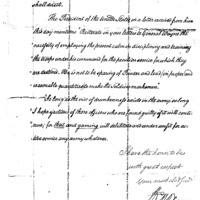 shall direct.
The President of the United States in a letter received from him
this day mentions "Reiterate in your letters to General Wayne the
necessity of employing the present calm in disciplining and training
the troops under his command for the particular service for which they
are destined. He is not to be sparing of Powder and lead (in proper and
reasonable quantities) to make the Soldiers marksmen."
So long as the vice of drunkenness exists in the army so long
I hope, ejection of those officers who are found guilty of it will contin-
ue; for that and gaming will debilitate and render unfit for ac-
tive service any army whatever.
I have the honor to be
with great respect
your most obed. Serv.